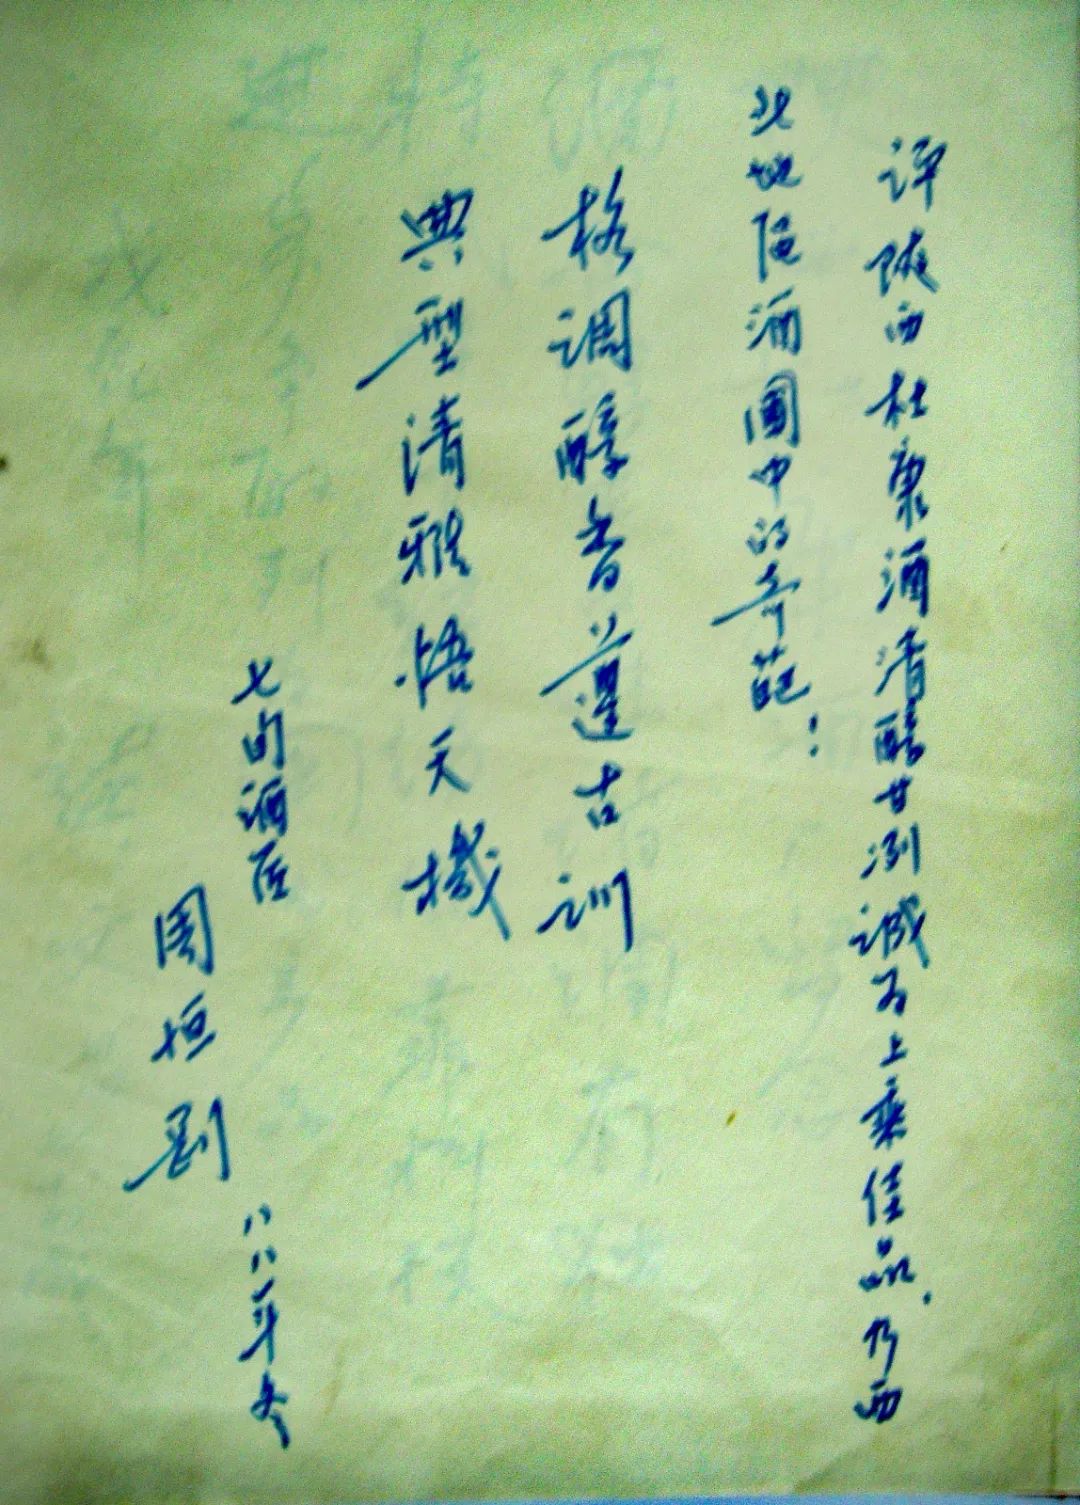 评陕西杜康酒清醇甘洌诚为上乘佳品.乃西
北地区酒圃中的奇葩:
格调醇香遵古训
典型清雅悟天机
七旬酒医
周恒刚
八八年冬